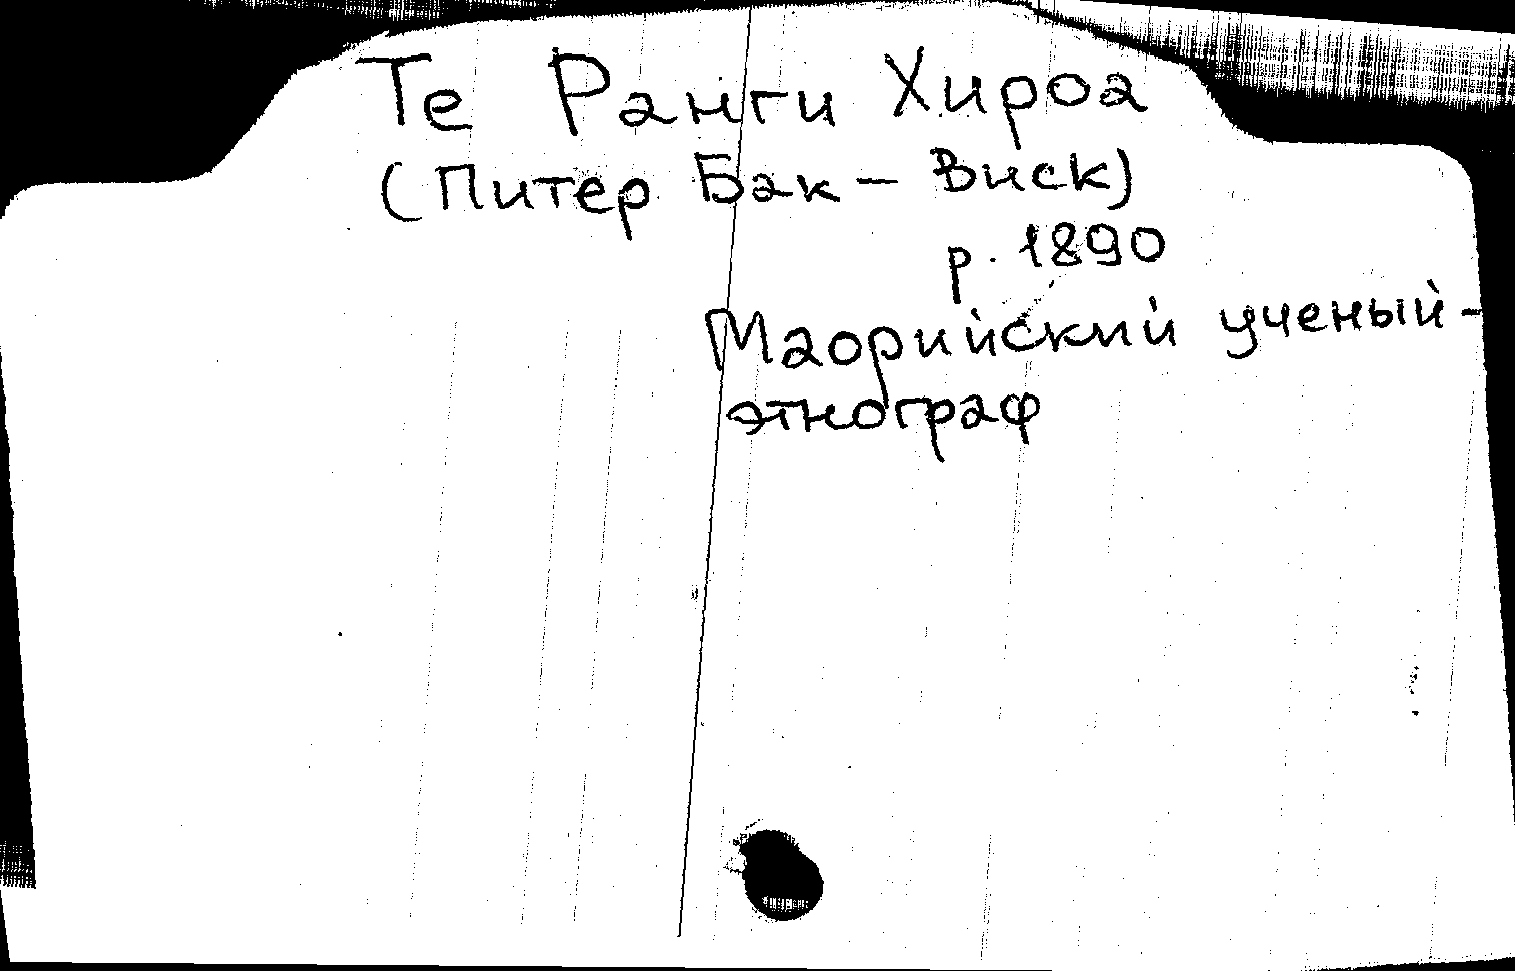 Те Ранги Хироа
(Питер Бак - Виск)
р. 1890
Маорийский ученый-
этнограф